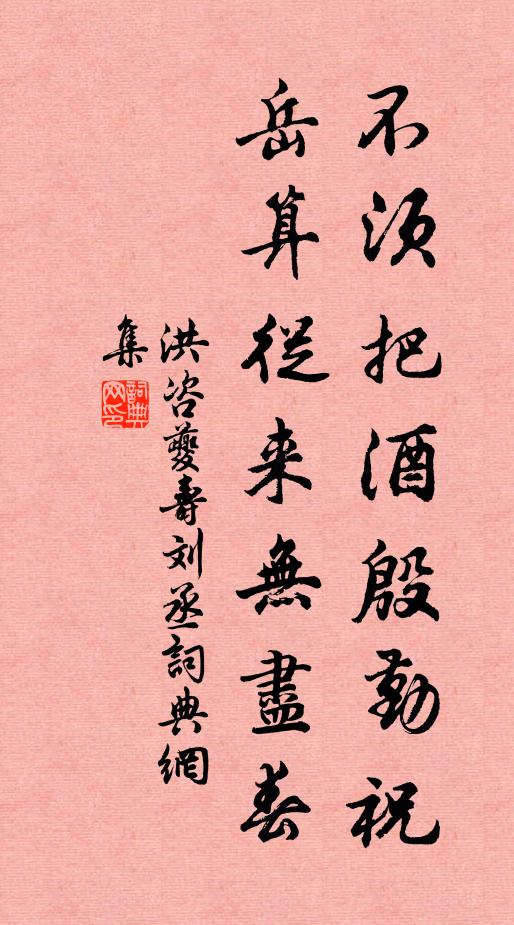 不須把酒殷勤祝
岳算從来無盡春
洪咨夔壽刘丞詞典網
集
詞典網印